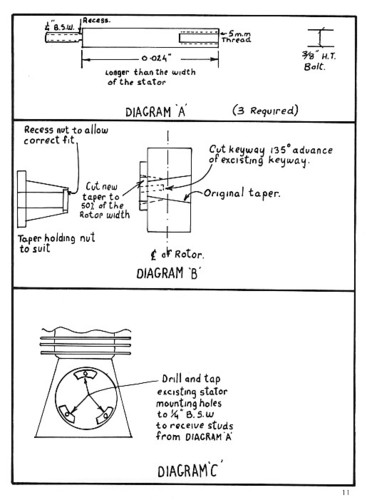 Recess.
¼" B.S.W.
5mm
Thread
0·024"
Longer than the width
of the stator
3/8" H.T.
Bolt.
DIAGRAM 'A'
(3 Required)
Recess nut to allow
correct fit
Cut keyway 135° advance
of excisting keyway.
Cut new
taper to
50% of the
Rotor width
Original taper.
Taper holding nut
to suit
℄ of Rotor.
DIAGRAM 'B'
Drill and tap
excisting stator
mounting holes
to ¼" B.S.W
to receive studs
from DIAGRAM 'A'
DIAGRAM 'C'
11